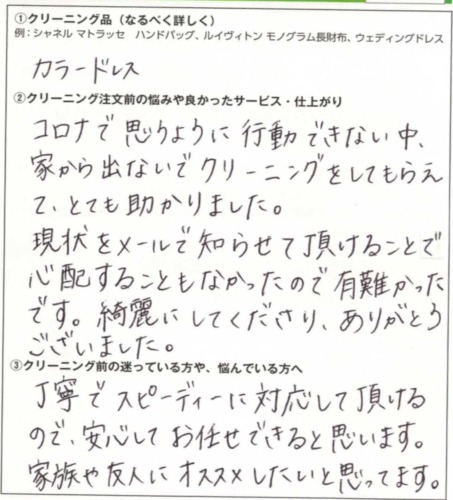 ①クリーニング品（なるべく詳しく）
例：シャネル マトラッセ　ハンドバッグ、ルイヴィトン モノグラム長財布、ウェディングドレス
カラードレス
②クリーニング注文前の悩みや良かったサービス・仕上がり
コロナで思うように行動できない中、
家から出ないでクリーニングをしてもらえ
て、とても助かりました。
現状をメールで知らせて頂けることで
心配することもなかったので有難かった
です。綺麗にしてくださり、ありがとう
ございました。
③クリーニング前の迷っている方や、悩んでいる方へ
丁寧でスピーディーに対応して頂ける
ので、安心してお任せできると思います。
家族や友人にオススメしたいと思ってます。